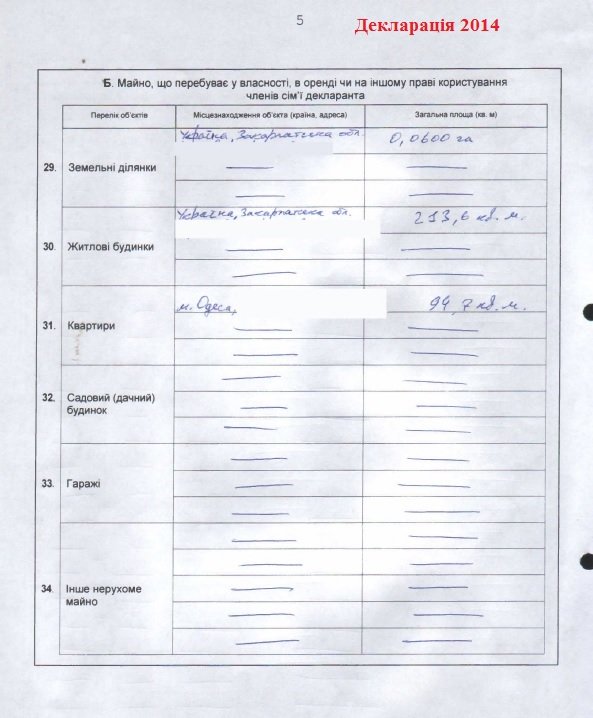 5
Декларація 2014
Б. Майно, що перебуває у власності, в оренді чи на іншому праві користування
членів сім'ї декларанта
Перелік об'єктів Місцезнаходження об'єкта (країна, адреса) Загальна площа (кв. м)
Україна, Закарпатська обл. 0,0600 га
29. Земельні ділянки
Україна, Закарпатська обл. 213,6 кв. м.
30. Житлові будинки
м. Одеса, 94,7 кв. м.
31. Квартири
32. Садовий (дачний)
будинок
33. Гаражі
34. Інше нерухоме
майно